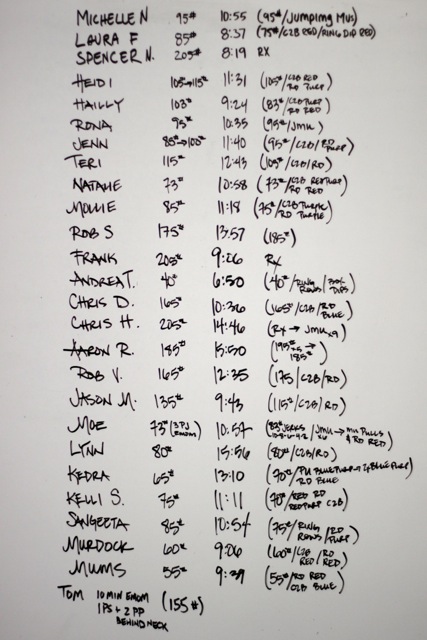 MICHELLE N 95# 10:55 (95#/Jumping Mus)
LAURA F 85# 8:37 (75#/C2B RED/RING DIP RED)
SPENCER N. 205# 8:19 RX
HEIDI 105→115# 11:31 (105#/C2B RED RD PURP)
HAILLY 103# 9:24 (83#/C2B PURP RD RED)
RONA 95# 10:35 (95#/JMU)
JENN 85#→100# 11:40 (95#/C2B/RD PURP)
TERI 115# 12:43 (105#/C2B/RD)
NATALIE 73# 10:58 (73#/C2B RED PURP RD RED)
MOLLIE 85# 11:18 (75#/C2B PURPLE RD PURPLE)
ROB S 175# 13:57 (185#)
FRANK 205# 9:06 RX
ANDREA T. 40# 6:50 (40#/RING ROWS/BOX DIPS)
CHRIS D. 165# 10:36 (165#/C2B/RD BLUE)
CHRIS H. 205# 14:46 (RX → JMU x9)
AARON R. 185# 15:50 (195# → 185#)
ROB V. 165# 12:35 (175/C2B/RD)
JASON M. 135# 9:43 (115#/C2B/RD)
MOE 73# (3 PJ EMOM) 10:57 (83# JERKS /JMU → MU PULLS & RD RED)
LYNN 80# 15:56 (80#/C2B/RD)
KEDRA 65# 13:10 (70#/PU BLUE PURP → BLUE PURP RD BLUE)
KELLI S. 75# 11:11 (70#/RED RD RED PURP C2B)
SANGEETA 85# 10:54 (75#/RING ROWS/RD PURP)
MURDOCK 60# 9:06 (60#/C2B RED/RD RED)
MUMS 55# 9:39 (55#/RD RED C2B BLUE)
TOM 10 MIN EMOM (155#)
1 PS + 2 PP
BEHIND NECK